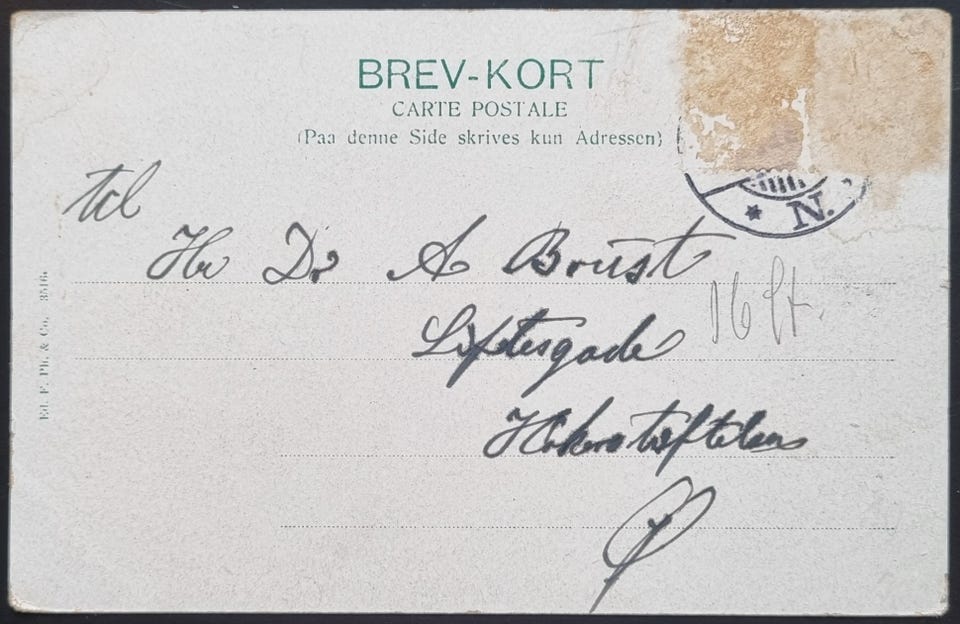 BREV-KORT
CARTE POSTALE
(Paa denne Side skrives kun Adressen)
til
Hr Dr A Brust
N.
16 St.
Ed. F. Ph. & Co. 3516.
Ø